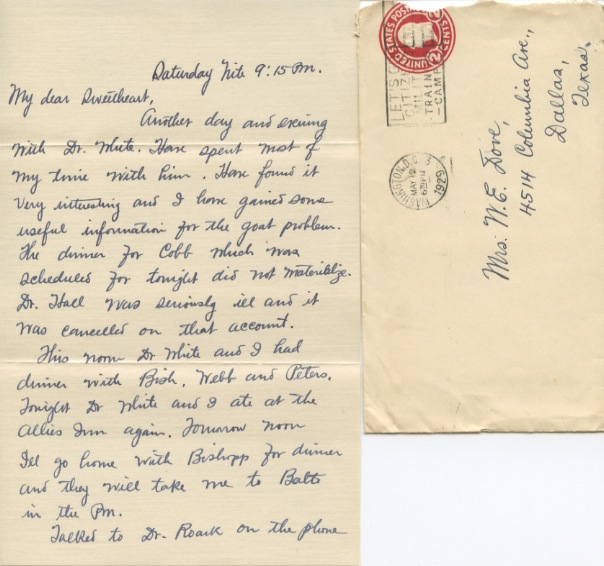 Saturday Nite 9:15 Pm.
My dear Sweetheart,
Another day and evening
with Dr. White. Have spent most of
my time with him. Have found it
very interesting and I have gained some
useful information for the goat problem.
The dinner for Cobb which was
scheduled for tonight did not materialize.
Dr. Hall was seriously ill and it
was cancelled on that account.
This noon Dr White and I had
dinner with Bish, Webb and Peters.
Tonight Dr White and I ate at the
Allies Inn again. Tomorrow noon
I'll go home with Bishopp for dinner
and they will take me to Balto
in the Pm.
Talked to Dr. Roark on the phone
UNITED STATES POSTAGE
2 CENTS 2
LET'S G
CITIZ
MILIT
TRAIN
CAMP
WASHINGTON, D.C. 3
MAY 12
1929
Mrs. W. E. Dove,
4514 Columbia Ave.,
Dallas,
Texas.